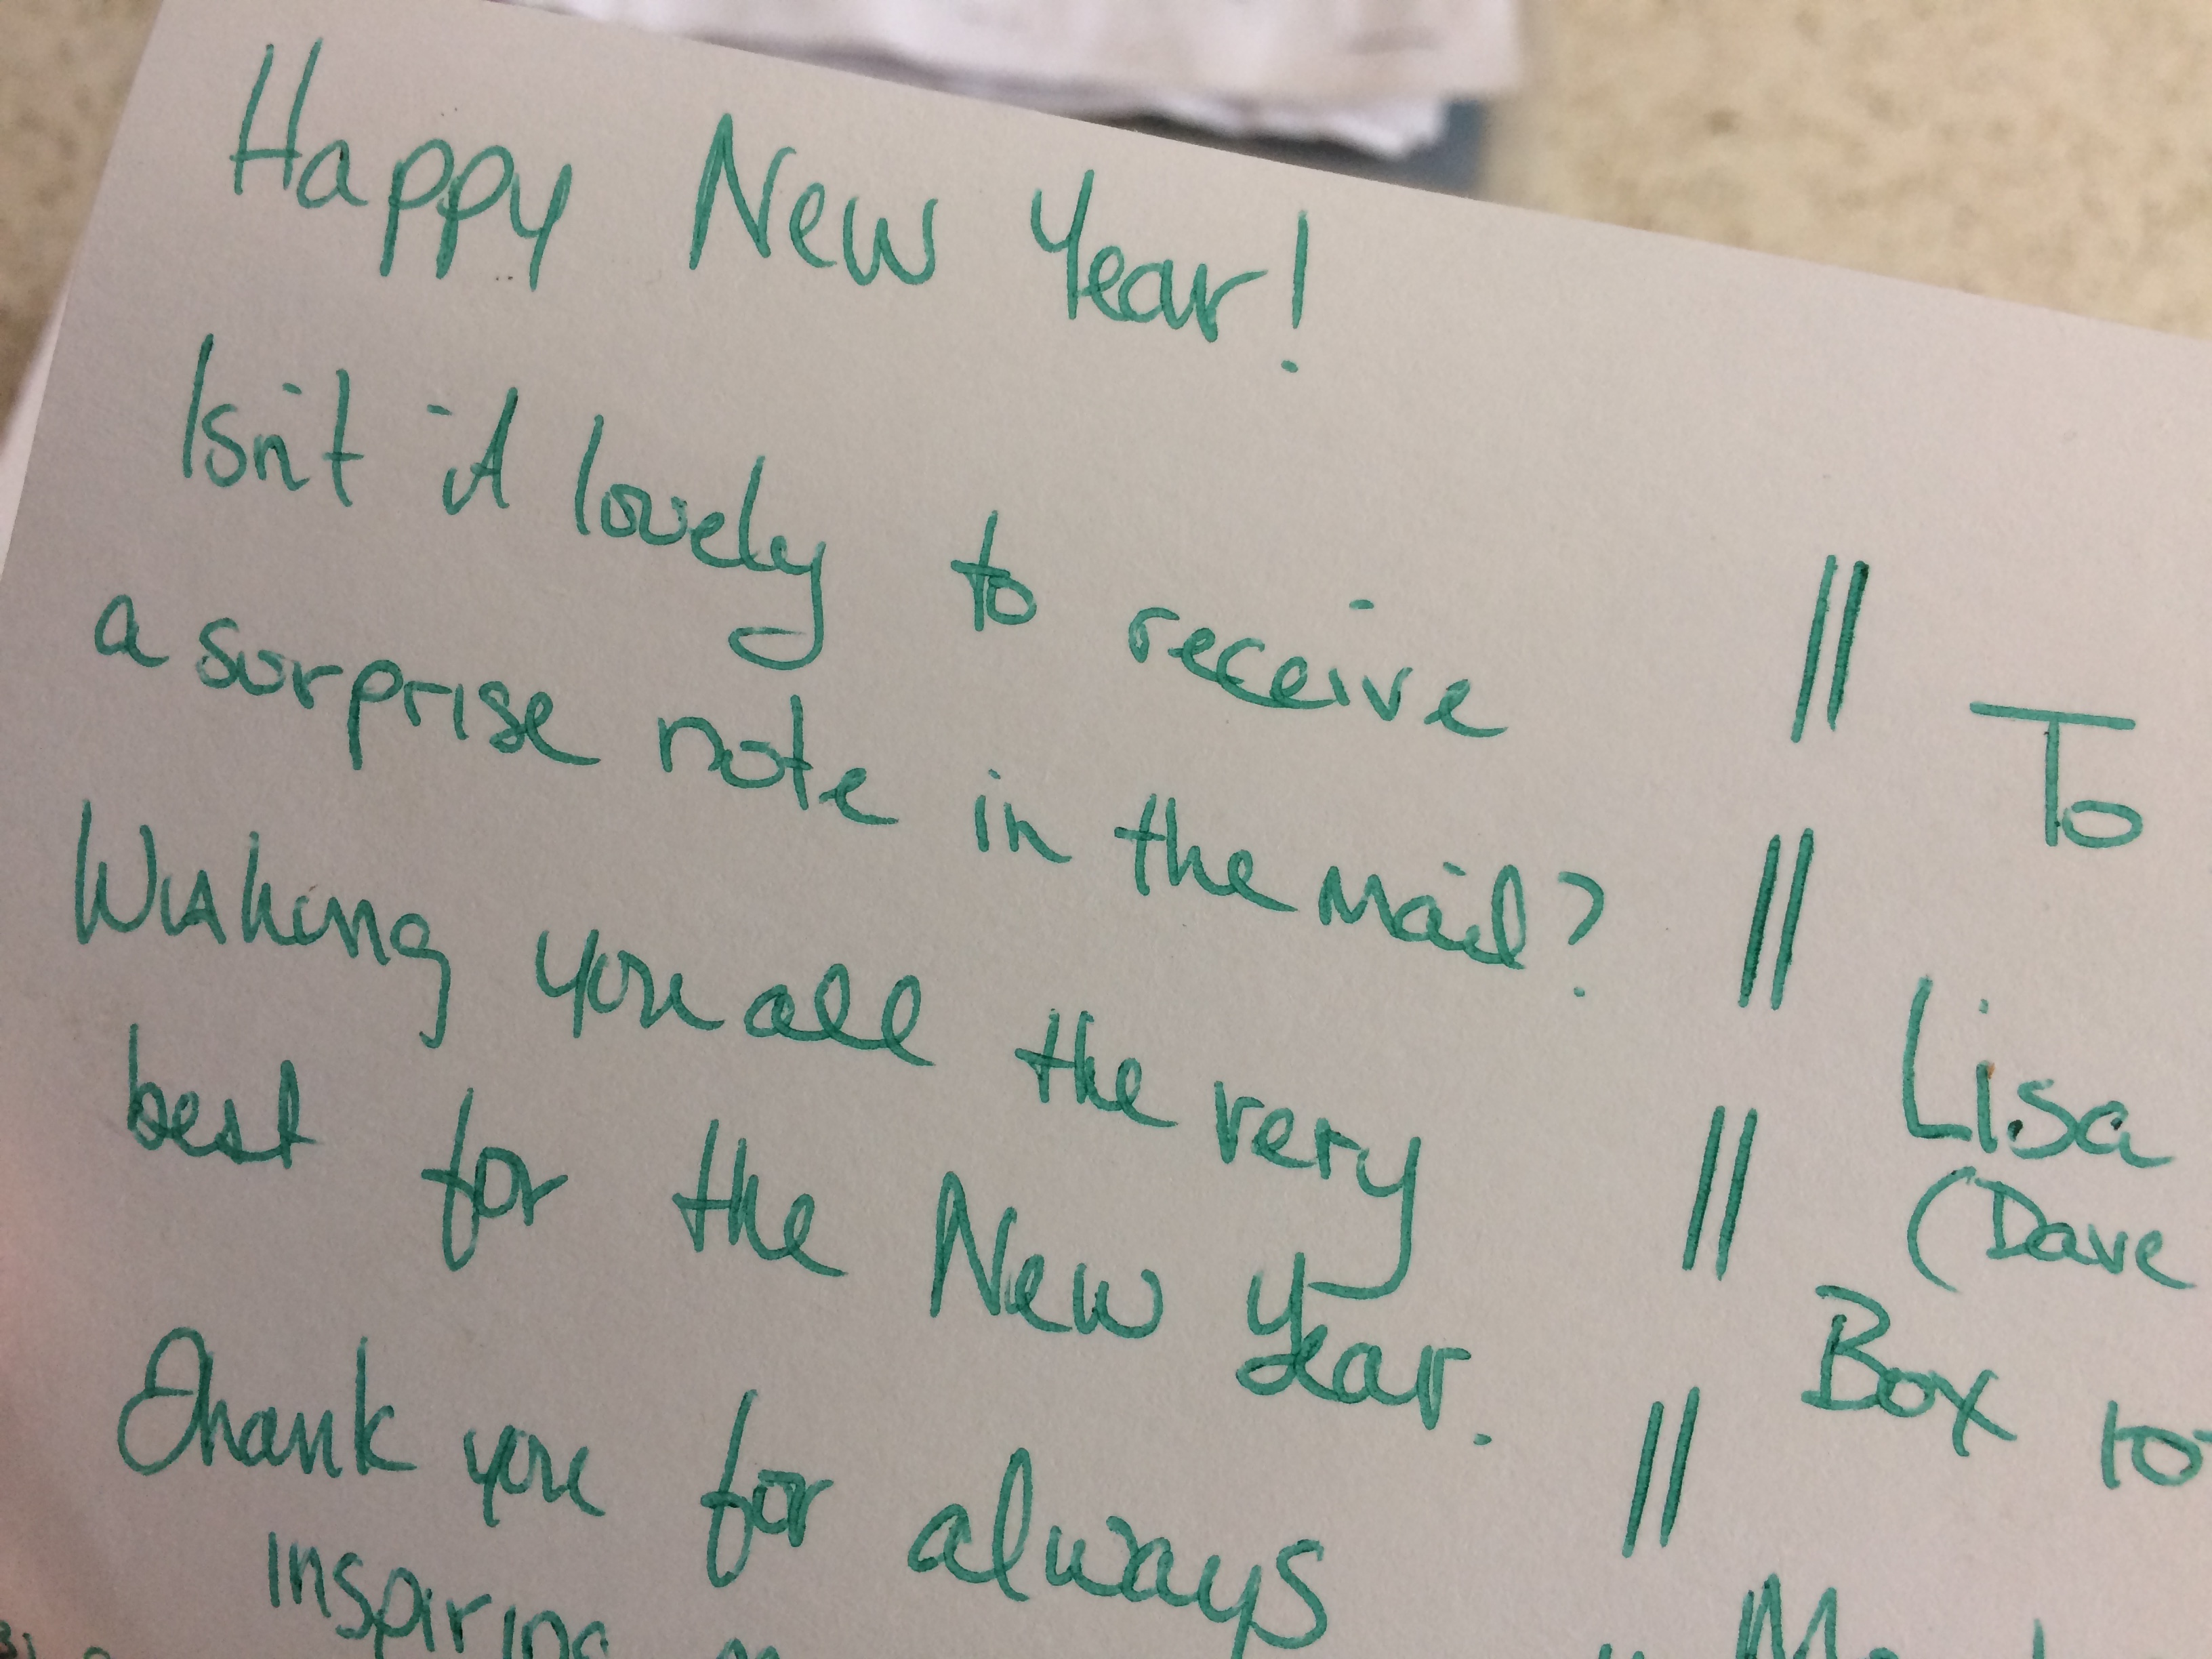 Happy New Year!
Isn't it lovely to receive
a surprise note in the mail?
Wishing you all the very
best for the New Year.
Thank you for always
inspiring
To
Lisa
(Dave
Box